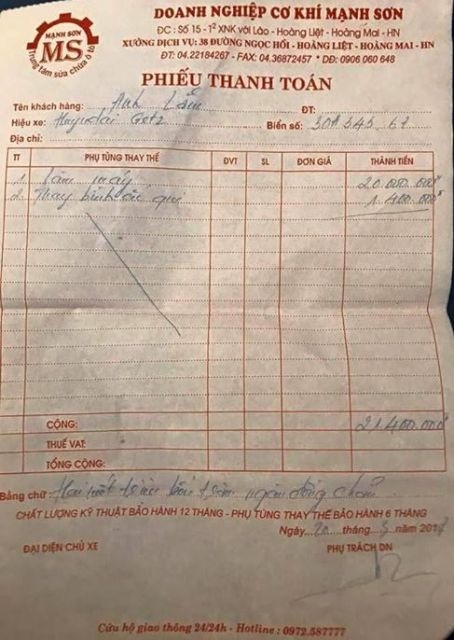 MẠNH SƠN
MS
Trung tâm sửa chữa ô tô
DOANH NGHIỆP CƠ KHÍ MẠNH SƠN
ĐC: Số 15 - 1ª XNK với Lào - Hoàng Liệt - Hoàng Mai - HN
XƯỞNG DỊCH VỤ: 38 ĐƯỜNG NGỌC HỒI - HOÀNG LIỆT - HOÀNG MAI - HN
ĐT: 04.22184267 - FAX: 04.36872457 * DĐ: 0906 060 648
PHIẾU THANH TOÁN
Tên khách hàng: Anh ĐT:
Hiệu xe: Hyundai Getz Biển số: 30A 545 61
Địa chỉ:
TT PHỤ TÙNG THAY THẾ ĐVT SL ĐƠN GIÁ THÀNH TIỀN
1. Làm máy 20.000.000đ
2. Thay bình ắc quy 1.400.000đ
CỘNG: 21.400.000đ
THUẾ VAT:
TỔNG CỘNG:
Bằng chữ: Hai mốt triệu bốn trăm ngàn đồng chẵn
CHẤT LƯỢNG KỸ THUẬT BẢO HÀNH 12 THÁNG - PHỤ TÙNG THAY THẾ BẢO HÀNH 6 THÁNG
Ngày 20 tháng 3 năm 201
ĐẠI DIỆN CHỦ XE PHỤ TRÁCH DN
Cứu hộ giao thông 24/24h - Hotline: 0972.587777